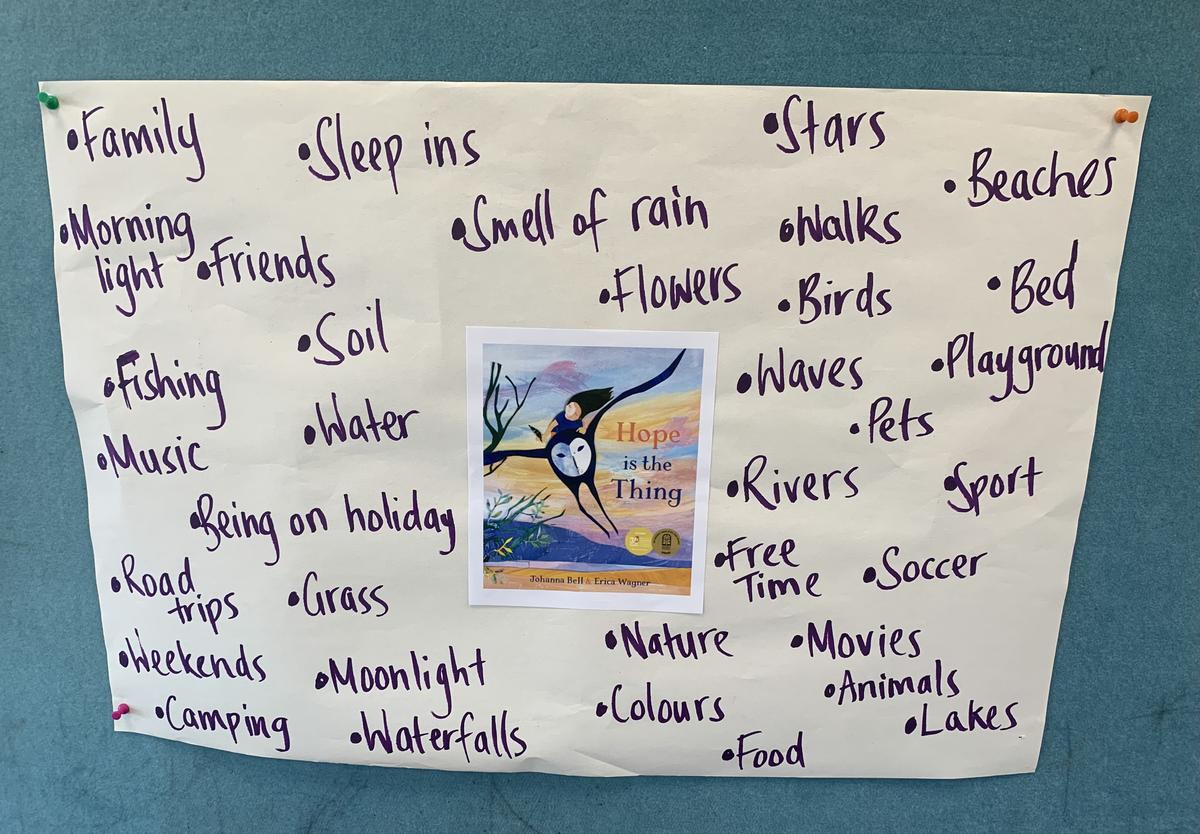 •Family
•Sleep ins
•Stars
•Beaches
•Morning
light
•Friends
•Smell of rain
•Walks
•Flowers
•Birds
•Bed
•Soil
•Fishing
•Waves
•Playground
•Water
•Pets
•Music
•Rivers
•Sport
•Being on holiday
Hope
is the
Thing
Johanna Bell & Erica Wagner
•Free
Time
•Soccer
•Road
trips
•Grass
•Weekends
•Moonlight
•Nature
•Movies
•Animals
•Camping
•Waterfalls
•Colours
•Lakes
•Food